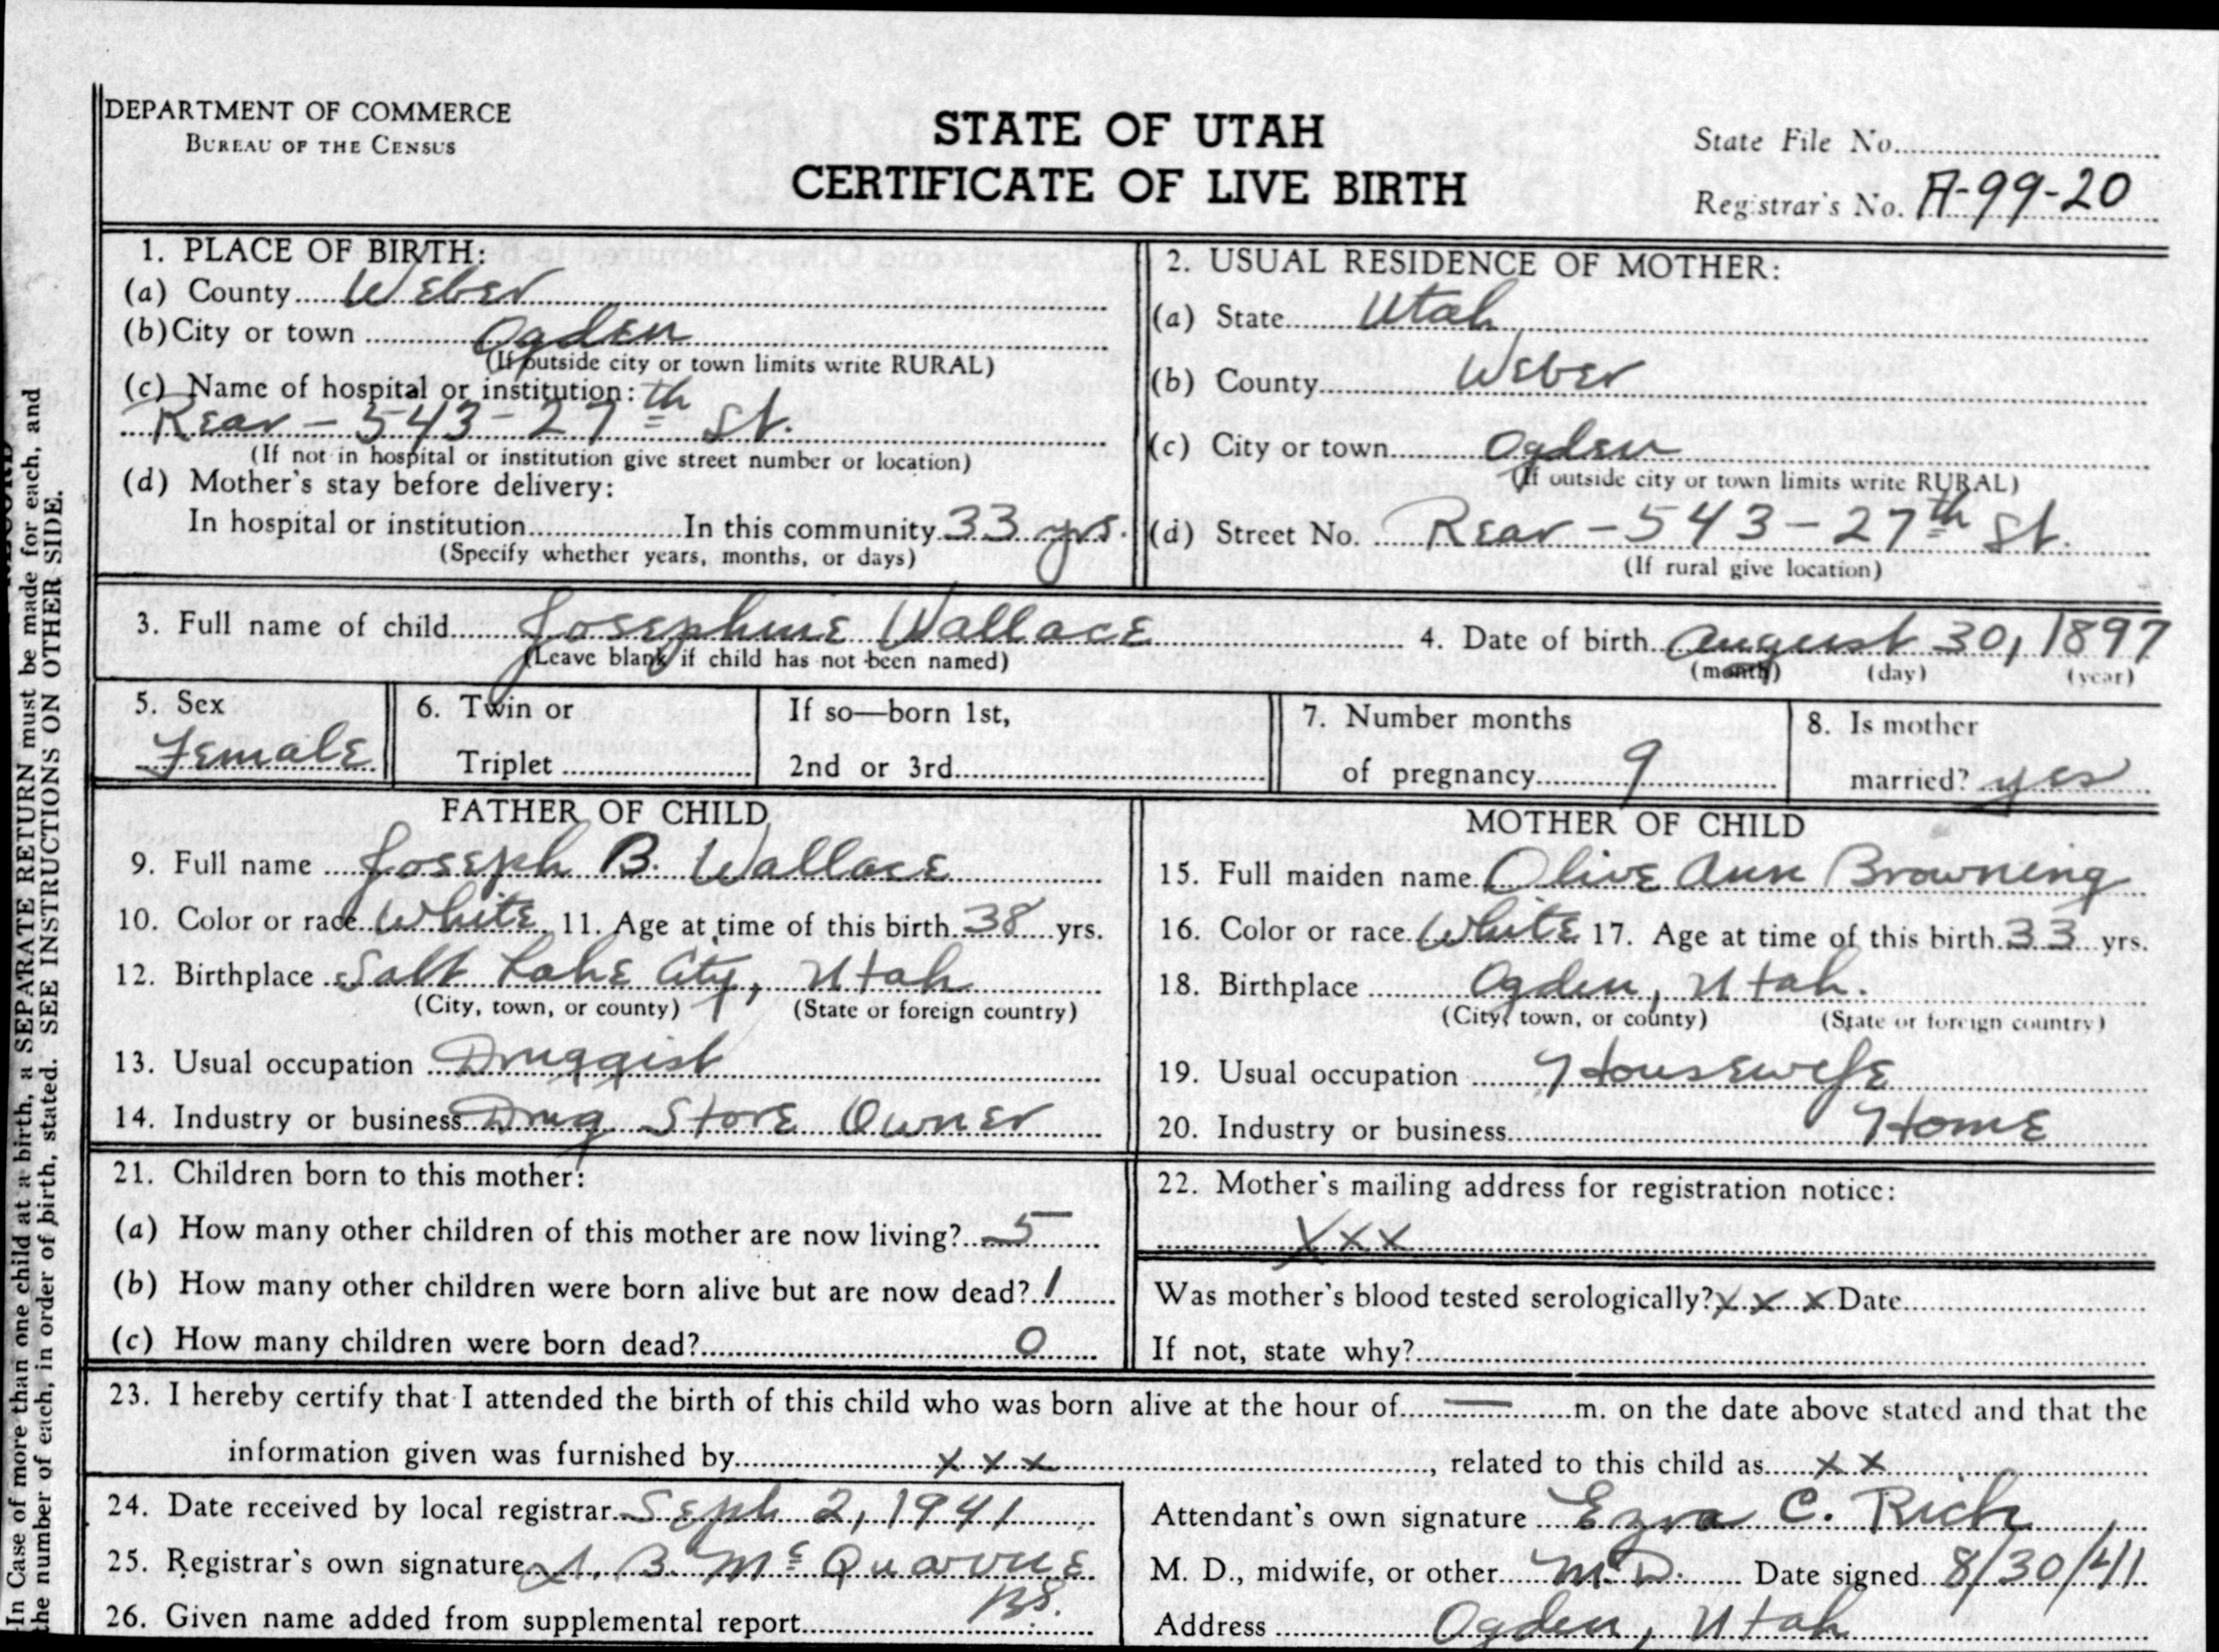 DEPARTMENT OF COMMERCE
BUREAU OF THE CENSUS
STATE OF UTAH
CERTIFICATE OF LIVE BIRTH
State File No.
Registrar's No. A-99-20
1. PLACE OF BIRTH:
(a) County Weber
(b) City or town Ogden
(If outside city or town limits write RURAL)
(c) Name of hospital or institution:
Rear - 543 - 27th St.
(If not in hospital or institution give street number or location)
(d) Mother's stay before delivery:
In hospital or institution In this community 33 yrs.
(Specify whether years, months, or days)
2. USUAL RESIDENCE OF MOTHER:
(a) State Utah
(b) County Weber
(c) City or town Ogden
(If outside city or town limits write RURAL)
(d) Street No. Rear - 543 - 27th St.
(If rural give location)
3. Full name of child Josephine Wallace 4. Date of birth August 30, 1897
(Leave blank if child has not been named) (month) (day) (year)
5. Sex
Female
6. Twin or
Triplet
If so—born 1st,
2nd or 3rd
7. Number months
of pregnancy 9
8. Is mother
married? yes
FATHER OF CHILD
9. Full name Joseph B. Wallace
10. Color or race White 11. Age at time of this birth 38 yrs.
12. Birthplace Salt Lake City, Utah
(City, town, or county) (State or foreign country)
13. Usual occupation Druggist
14. Industry or business Drug Store Owner
MOTHER OF CHILD
15. Full maiden name Olive Ann Browning
16. Color or race White 17. Age at time of this birth 33 yrs.
18. Birthplace Ogden, Utah.
(City, town, or county) (State or foreign country)
19. Usual occupation Housewife
20. Industry or business Home
21. Children born to this mother:
(a) How many other children of this mother are now living? 5
(b) How many other children were born alive but are now dead? 1
(c) How many children were born dead? 0
22. Mother's mailing address for registration notice:
XXX
Was mother's blood tested serologically? X X X Date
If not, state why?
23. I hereby certify that I attended the birth of this child who was born alive at the hour of — m. on the date above stated and that the
information given was furnished by x x x, related to this child as x x
24. Date received by local registrar Sept 2, 1941
25. Registrar's own signature B. McQuarrie
BS.
26. Given name added from supplemental report
Attendant's own signature Ezra C. Rich
M. D., midwife, or other M.D. Date signed 8/30/41
Address Ogden, Utah
In Case of more than one child at a birth, a SEPARATE RETURN must be made for each, and
the number of each, in order of birth, stated. SEE INSTRUCTIONS ON OTHER SIDE.